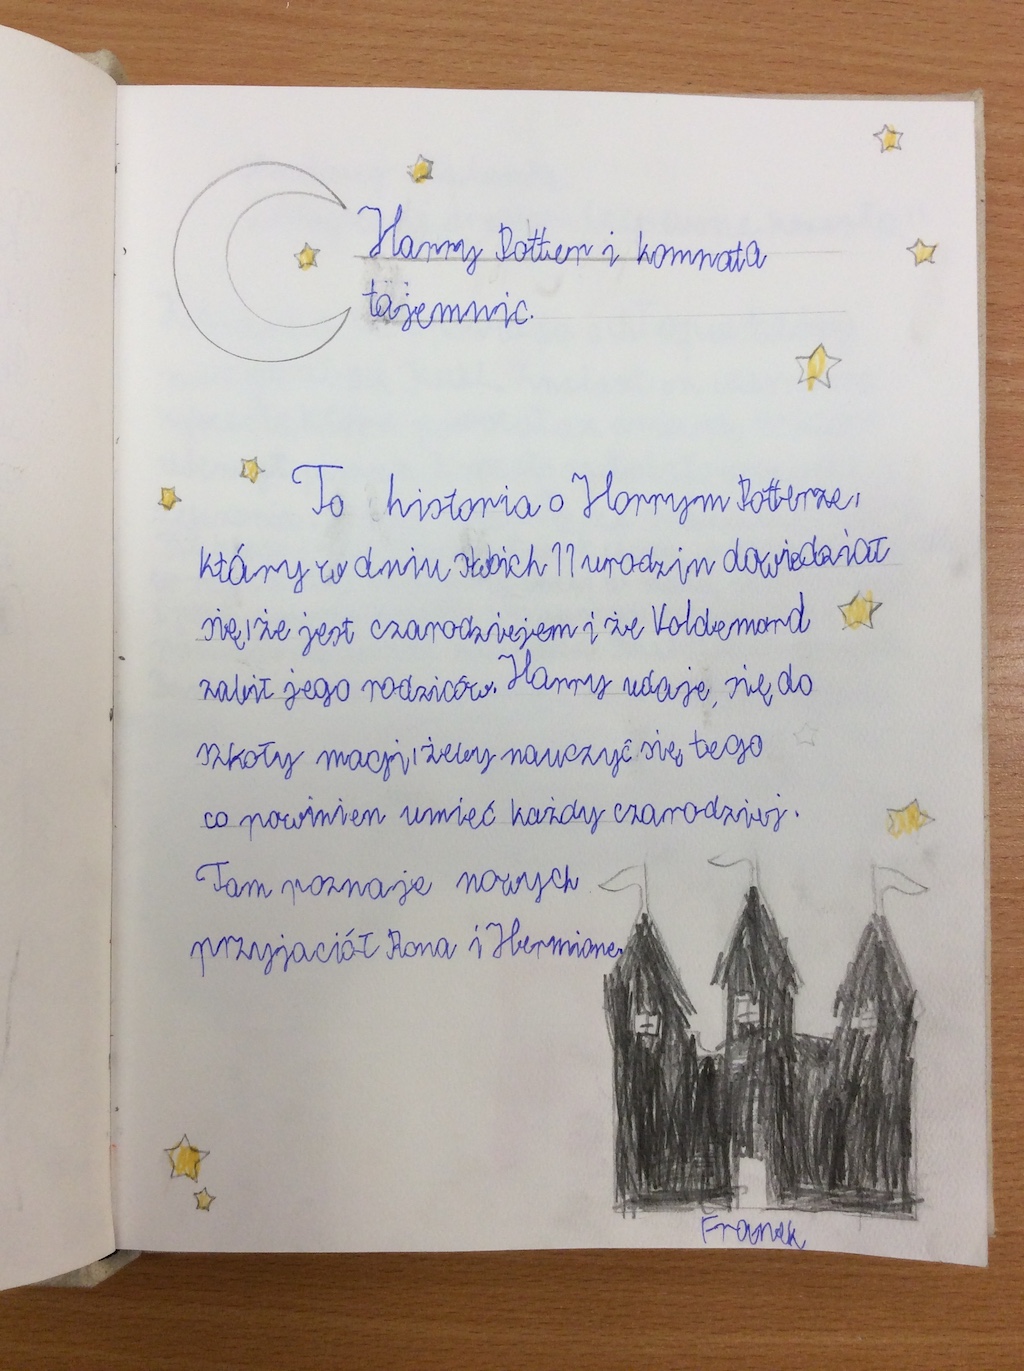 Harry Potter i komnata
tajemnic.
To historia o Harrym Potterze,
który w dniu swoich 11 urodzin dowiedział
się, że jest czarodziejem i że Voldemord
zabił jego rodziców. Harry udaje się do
szkoły magji, żeby nauczyć się tego
co powinien umieć każdy czarodziej.
Tam poznaje nowych
przyjaciół Rona i Hermione.
Franek